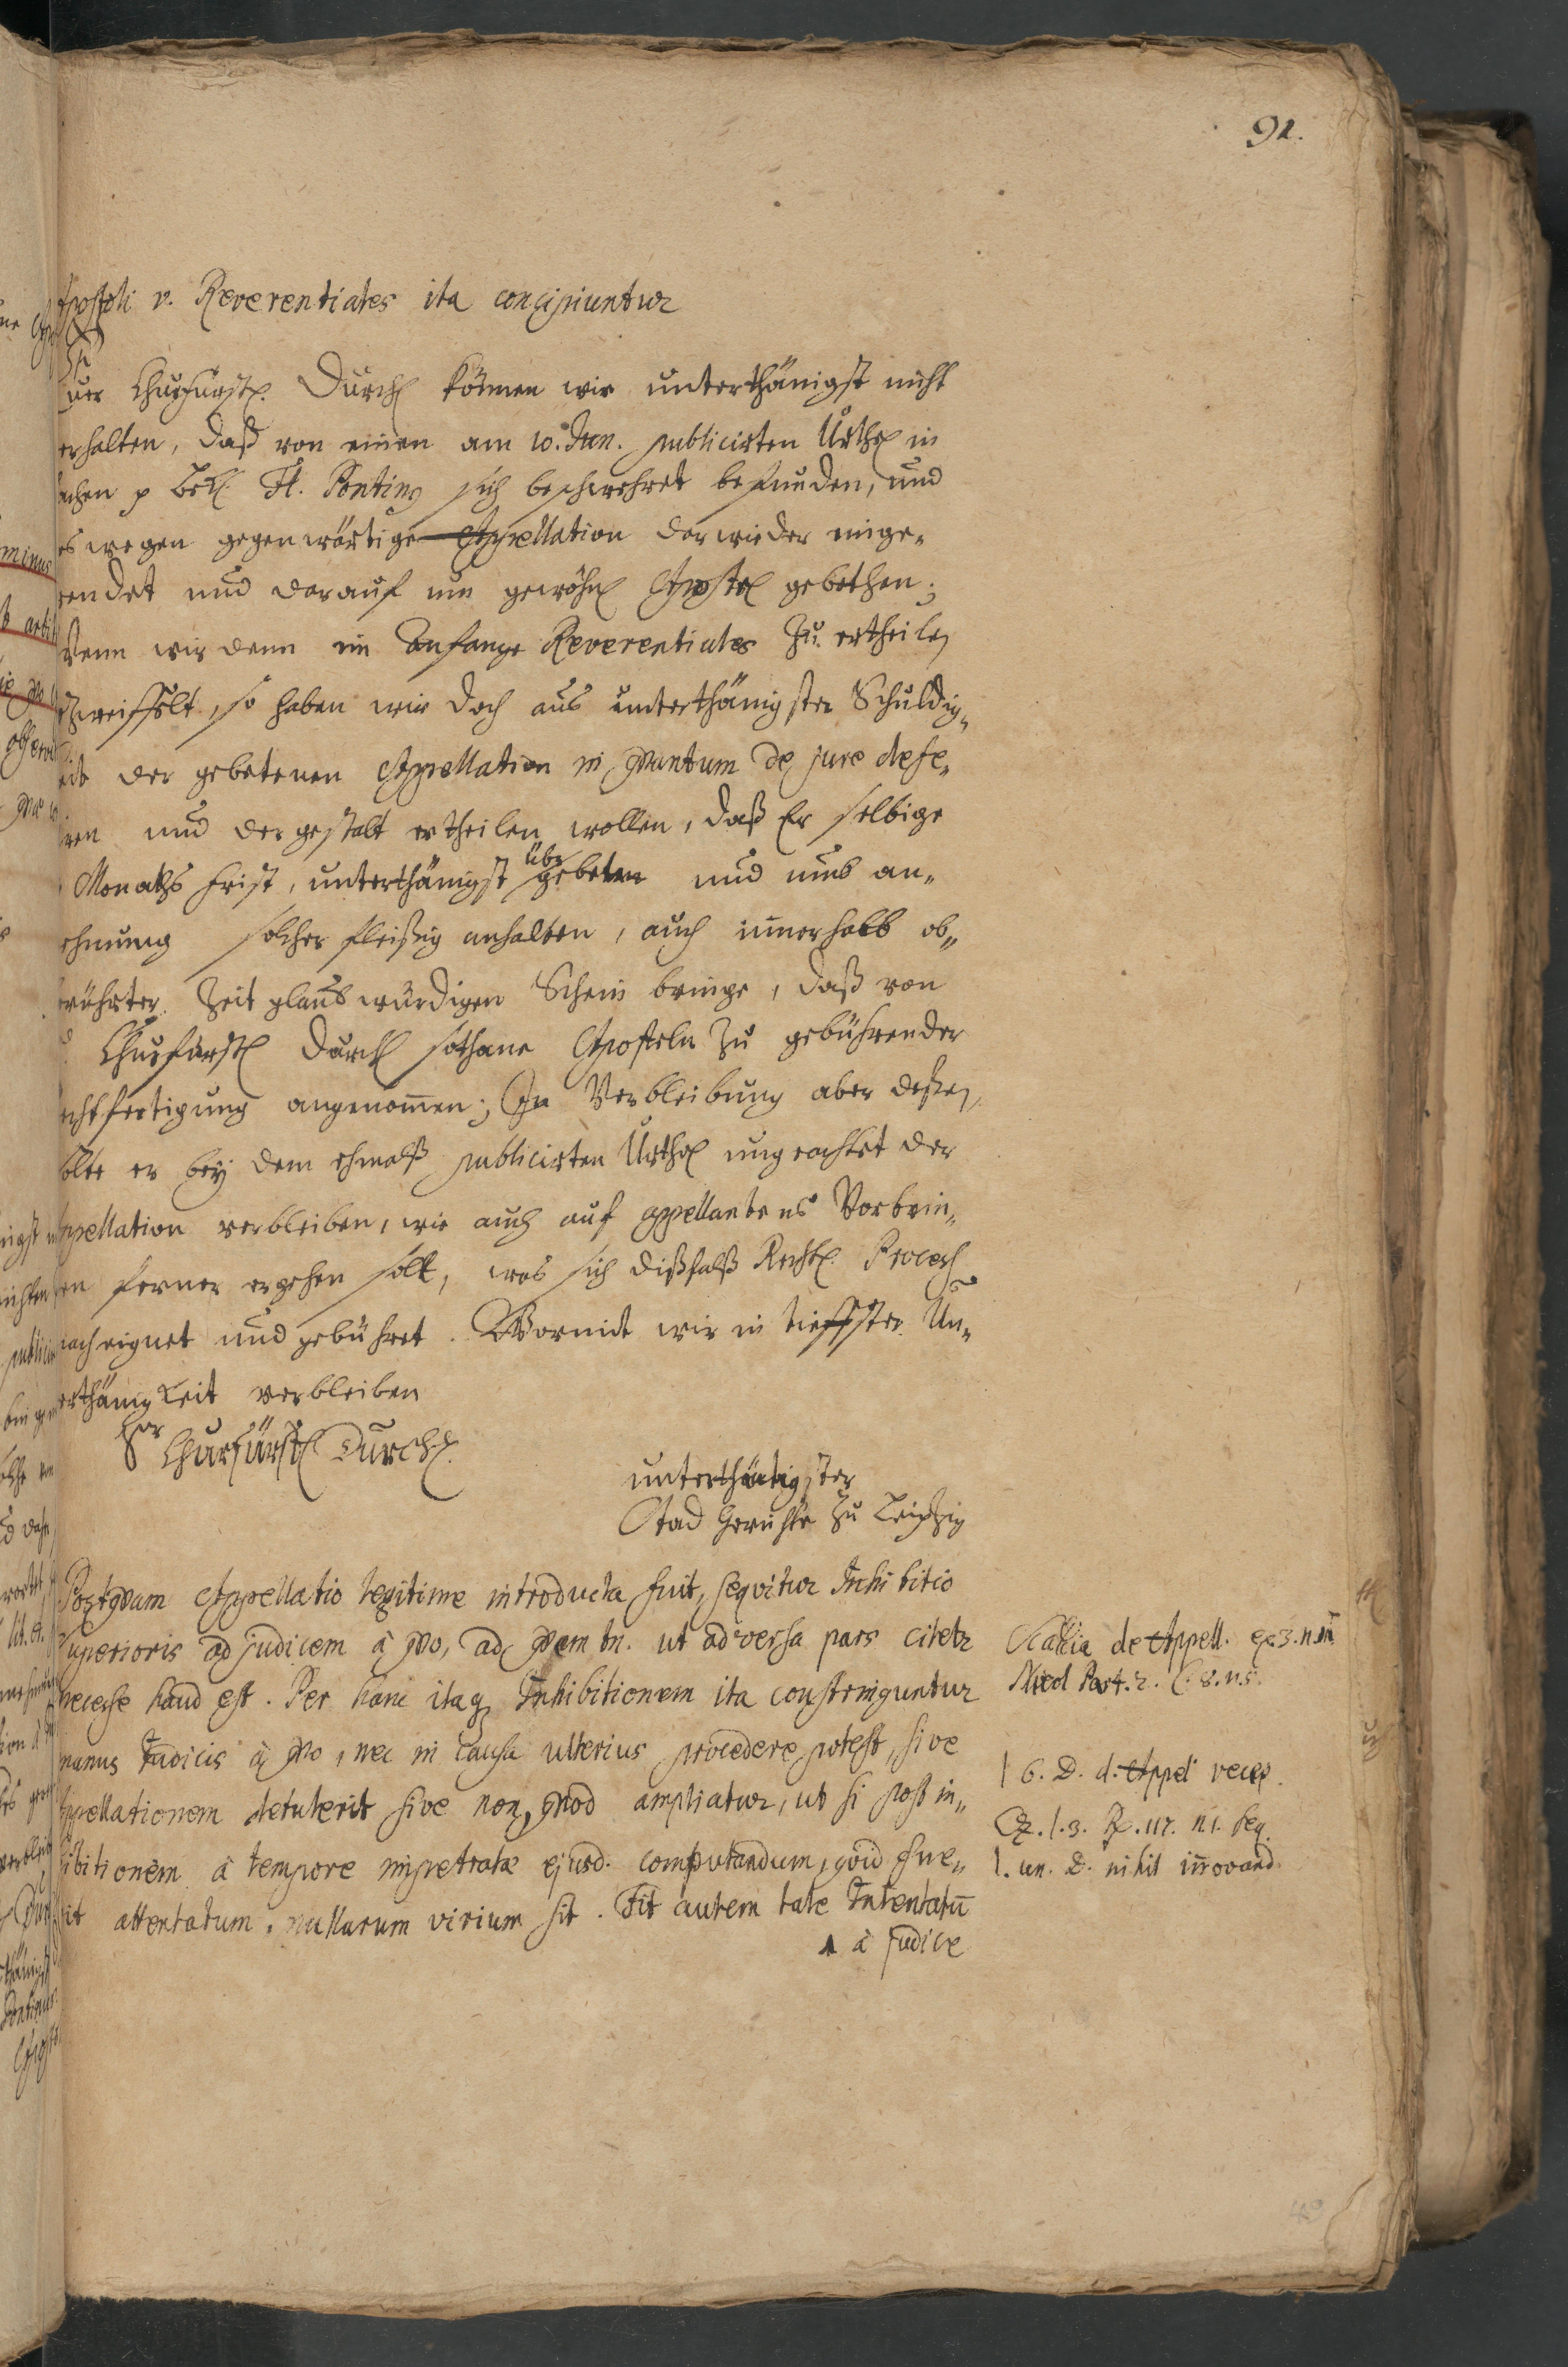 91.
Apostoli v. Reverentiales ita concipiuntur
Euer Churfürstl. Durchl können wir unterthänigst nicht
erhalten, daß von einen am 10. Jun. publicirten Urthel in
achen p Bekl. H. Pontius sich beschwehret befunden, und
es wegen gegenwärtige Appellation darwieder einge-
wendet und darauf um gewöhnl Apostel gebethen;
Wenn wir denn im Anfange Reverentiales zu ertheilen
zweiffelt, so haben wir doch aus unterthänigster Schuldig-
eit der gebetenen Appellation in quantum de jure defe-
riren und der gestalt ertheilen wollen, daß Er selbige
Monaths frist, unterthänigst übergeben und umb an-
ehmung solcher fleißig anhalten, auch innerhalb ob-
erührter Zeit glaubwürdigen Schein bringe, daß von
Churfürstl Durchl sothane Aposteln zu gebührender
echtfertigung angenommen; In Verbleibung aber deßen,
olte er bey dem ehmalß publicirten Urthel ungeachtet der
Appellation verbleiben, wie auch auf appellantens Vorbrin-
en ferner ergehen solt, was sich dißfalß Rechtl. Process
nach eignet und gebühret. Wormit wir in tieffster Un-
erthänigkeit verbleiben
Ewr Churfürstl Durchl.
unterthänigster
Stad Gerichte zu Leipzig
Postquam Appellatio legitime introducta fuit, sequitur Inhibitio
Superioris ad judicem à quo, ad quem tn. ut adversa pars citetr
necesse haud est. Per hanc itaq Inhibitionem ita constringuntur
manus Judicis à quo, nec in causa ulterius procedere potest, sive
Appellationem detulerit sive non, quod ampliatur, ut si post in-
hibitionem à tempore impetratæ ejusd. computandum, quid fue-
rit attentatum, nullarum virium sit. Fit autem tale Intentatū
à Judice
Scaccia de Appell. n.
Part. 2. C. 8. n. 5.
l 6. D. d. Appel recep.
Cz. l. 3. R. 117. n 1. seq.
l. un. D. nihil innovand.